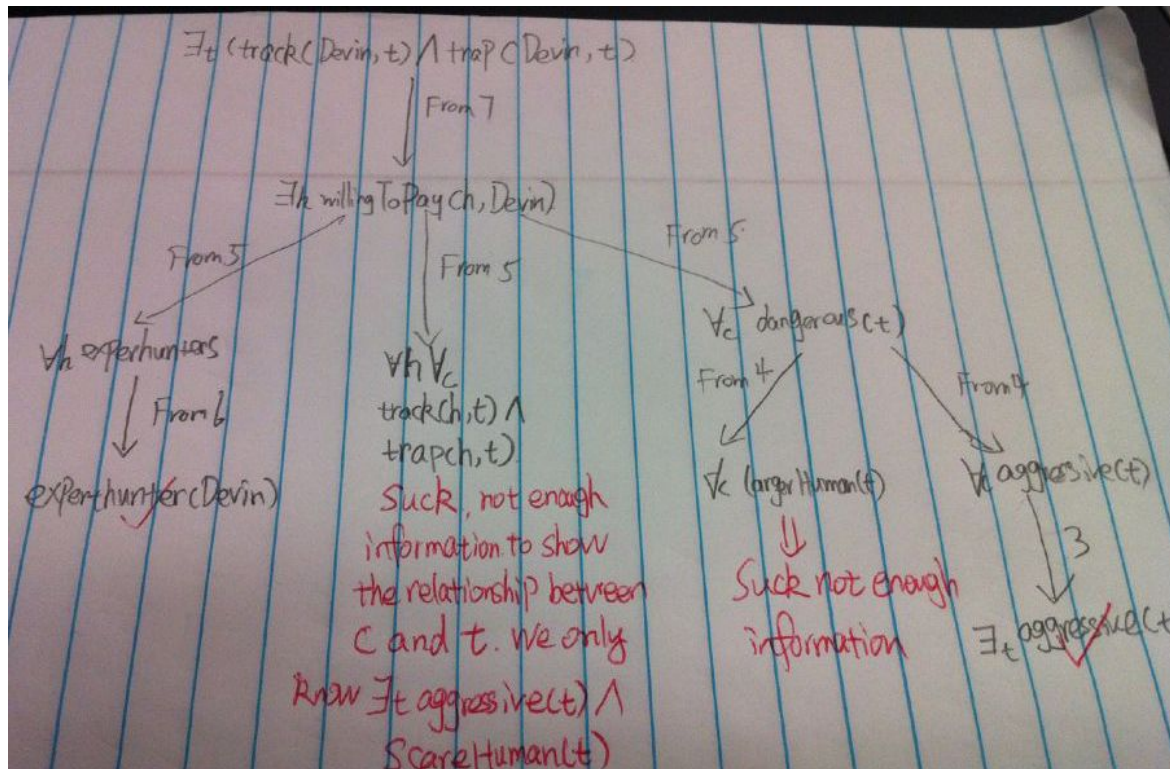 ∃t (track(Devin, t) ∧ trap(Devin, t)
From 7
∃h willingToPay(h, Devin)
From 5
From 5
From 5.
∀h experhunters
From 6
experthunter(Devin)
∀h ∀c
track(h, t) ∧
trap(h, t)
Suck, not enough
information to show
the relationship between
C and t. We only
know ∃t aggressive(t) ∧
ScareHuman(t)
∀c dangerous(t)
From 4
From 4
∀c largerHuman(t)
Suck not enough
information
∀c aggressive(t)
3
∃t aggressive(t